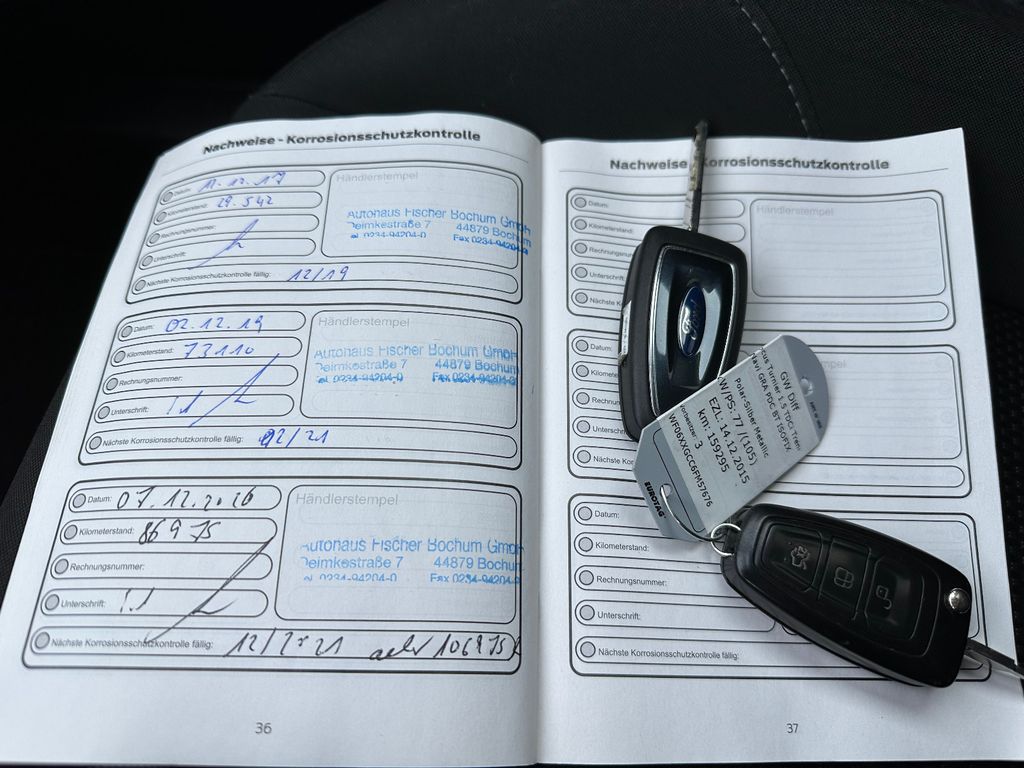 Nachweise - Korrosionsschutzkontrolle
Datum: 11.12.17
Kilometerstand: 29.542
Rechnungsnummer:
Unterschrift:
Nächste Korrosionsschutzkontrolle fällig: 12/19
Händlerstempel
Autohaus Fischer Bochum GmbH
Deimkestraße 7 44879 Bochum
Tel. 0234-94204-0 Fax 0234-94204-
Datum: 02.12.19
Kilometerstand: 73110
Rechnungsnummer:
Unterschrift:
Nächste Korrosionsschutzkontrolle fällig: 12/21
Händlerstempel
Autohaus Fischer Bochum GmbH
Deimkestraße 7 44879 Bochum
Tel. 0234-94204-0 Fax 0234-94204-
Datum: 07.12.2020
Kilometerstand: 86975
Rechnungsnummer:
Unterschrift:
Nächste Korrosionsschutzkontrolle fällig: 12/2021 oder 106975
Händlerstempel
Autohaus Fischer Bochum GmbH
Deimkestraße 7 44879 Bochum
Tel. 0234-94204-0 Fax 0234-94204-
36
Nachweise - Korrosionsschutzkontrolle
Datum:
Kilometerstand:
Rechnungsnu
Unterschrift
Nächste K
Händlerstempel
Datum:
Kilome
Rechn
Unters
Nächste Ko
mpel
Datum:
Kilometerstand:
Rechnungsnummer:
Unterschrift:
Nächste Korrosionsschutzkontrolle fällig:
37
Ford
GW Diff
cus Turnier 1.5 TDCi Tren
Navi GRA PDC BT ISOFIX
Polar-Silber Metallic
W/PS: 77 /(105)
EZL: 14.12.2015
km: 159295
Vorbesitzer: 3
WF06XXGCC6FM57676
EUROTAG